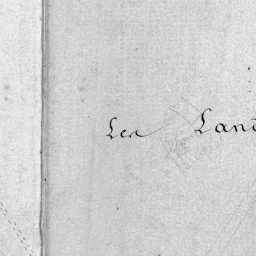 Lea Land